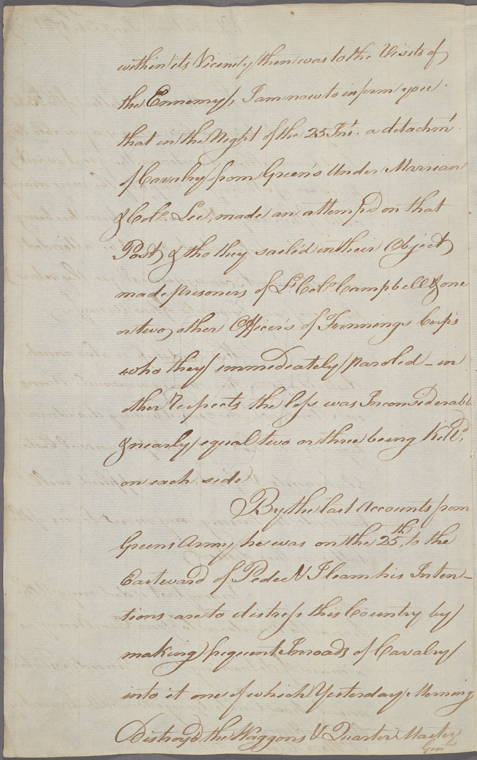 within its Vicinity then was to the Visits of
the Ennemy, I am now to inform you
that in the Night of the 25 Int. a detachmt.
of Cavalry from Green's Under Marrian
& Colo. Lee, made an attempt on that
Post, & tho they failed in their Object,
made prisoners of Lt. Colo. Campbell & one
or two other Officers of Fannings Corps
who they immediately paroled – in
other respects the loss was Inconsiderable
& nearly equal two or three being Kill'd
on each side
By the last Accounts from
Greens Army he was on the 25th, to the
Eastward of Pedee & I learn his Inten-
tions are to distress this Country by
making frequent Inroads of Cavalry
into it one of which Yesterday Morning
Distroy'd the Waggons & Quarter Master
Gen